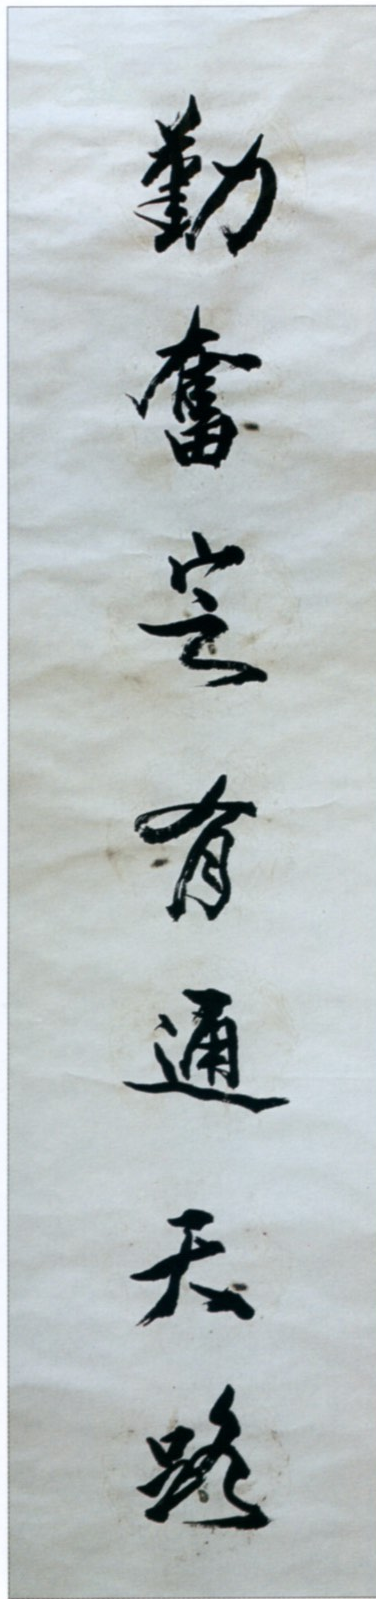 勤奮定有通天路